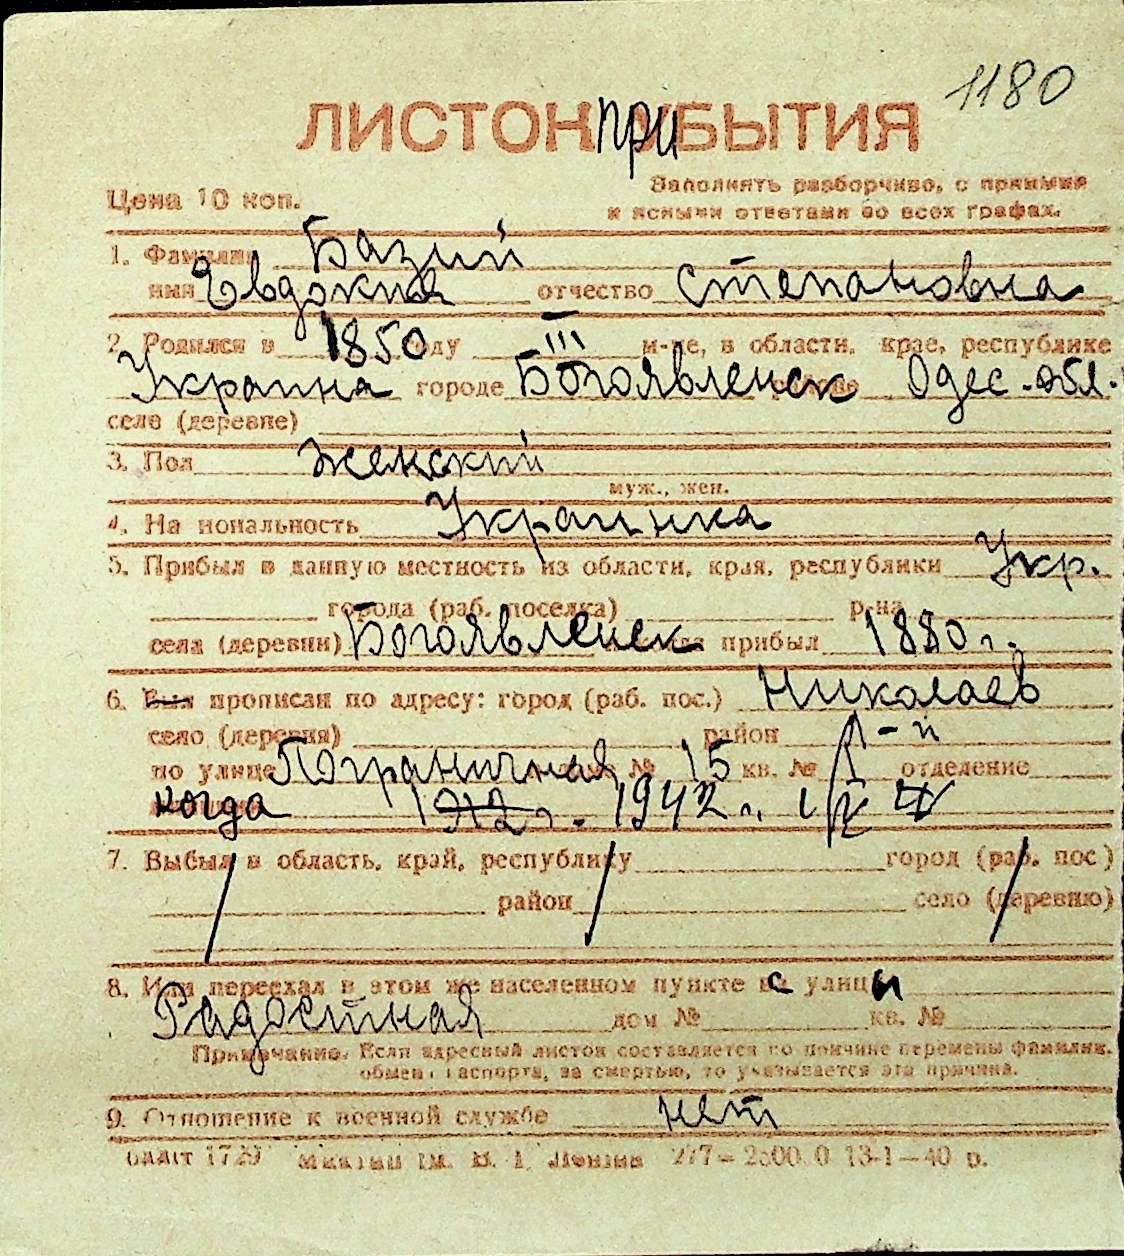 1180
ЛИСТОК ПРИБЫТИЯ
Цена 10 коп.
Заполнять разборчиво, с прямыми
и ясными ответами во всех графах.
1. Фамилия Базий
имя Евдокия отчество Степановна
2. Родился в 1850 году III м-це, в области, крае, республике
Украина городе Богоявленск Одес. обл.
село (деревне)
3. Пол женский
муж., жен.
4. Национальность Украинка
5. Прибыл в данную местность из области, края, республики Укр.
города (раб. поселка) р-на
села (деревни) Богоявленск прибыл 1880 г.
6. Был прописан по адресу: город (раб. пос.) Николаев
село (деревня) район
по улице Пограничная № 15 кв. № отделение
когда 1912 г. 1942 г.
7. Выбыл в область, край, республику город (раб. пос)
район село (деревню)
8. Или переехал в этом же населенном пункте с улицы
Радостная дом № кв. №
Примечание. Если адресный листок составляется по причине перемены фамилии,
обмена паспорта, за смертью, то указывается эта причина.
9. Отношение к военной службе нет
277—2500.0 13-1—40 р.